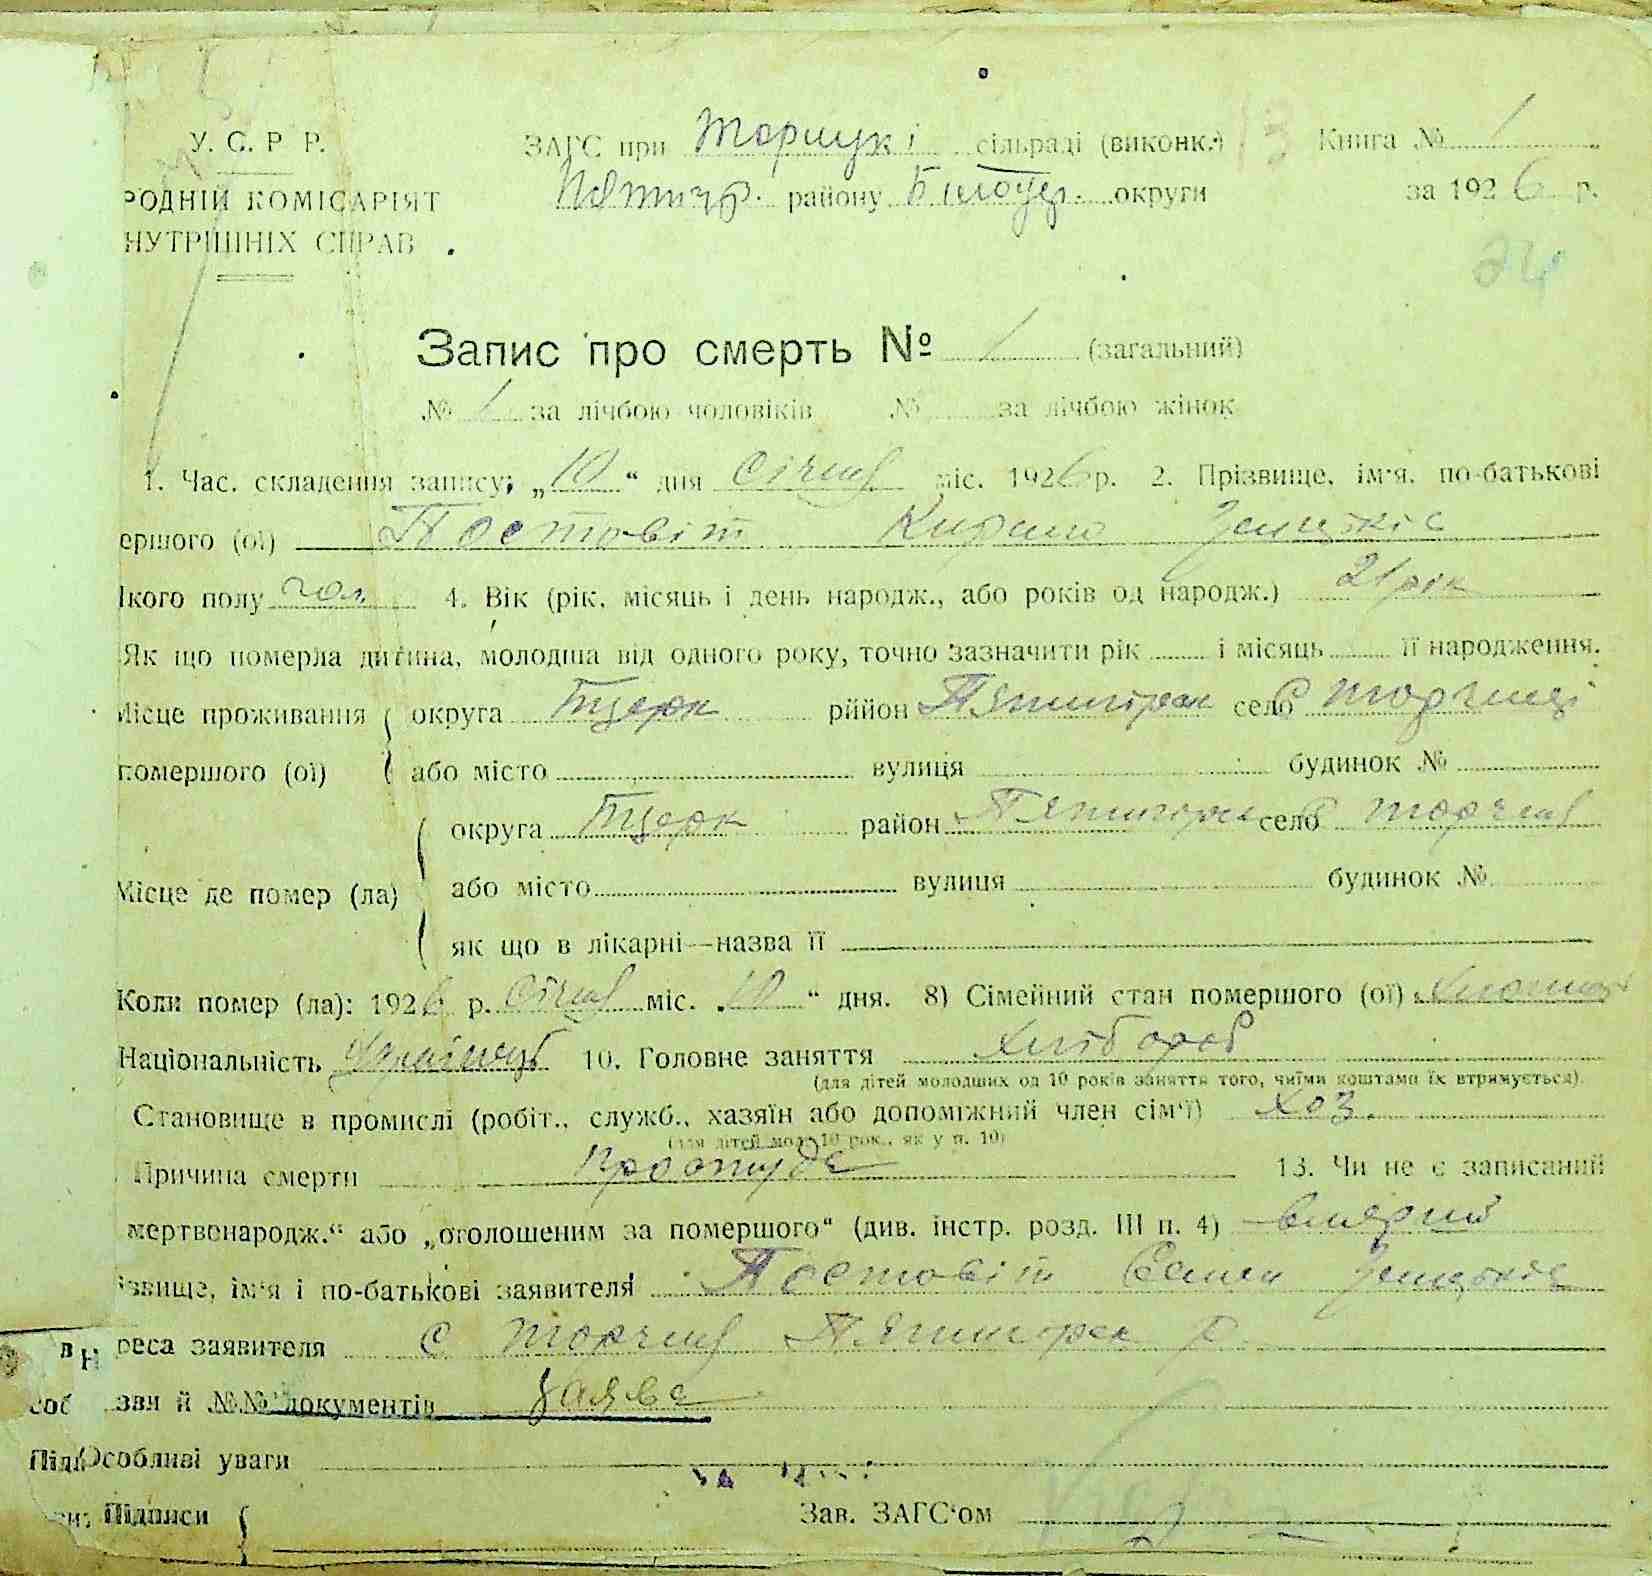 У. С. Р. Р. ЗАГС при сільраді (виконк.) 13 Книга № 1
РОДНІЙ КОМІСАРІЯТ району Білоцер. округи за 1926 р.
НУТРІШНІХ СПРАВ
24
Запис про смерть № 1 (загальний)
№ 1 за лічбою чоловіків № за лічбою жінок
1. Час. складення запису: „10“ дня Січня міс. 1926 р. 2. Прізвище, ім'я, по-батькові
ершого (ої) Постовіт Кирило
Якого полу чол. 4. Вік (рік, місяць і день народж., або років од народж.) 21 рік
Як що померла дитина, молодша від одного року, точно зазначити рік і місяць її народження.
Місце проживання округа Бцерк район Пятигорськ село Торчиці
помершого (ої) або місто вулиця будинок №
округа Бцерк район Пятигорськ село Торчиці
Місце де помер (ла) або місто вулиця будинок №
як що в лікарні—назва її
Коли помер (ла): 1926 р. Січня міс. „10“ дня. 8) Сімейний стан помершого (ої)
Національність Українець 10. Головне заняття Хлібороб
(для дітей молодших од 10 років заняття того, чиїми коштами їх втримується).
Становище в промислі (робіт., служб., хазяїн або допоміжний член сім'ї) хоз.
(для дітей мол. 10 рок., як у п. 10)
Причина смерти простуда 13. Чи не є записаний
мертвонародж.“ або „оголошеним за помершого“ (див. інстр. розд. III п. 4) вмерший
ізвище, ім'я і по-батькові заявителя Постовіт Семен
реса заявителя с Торчиці Пятигорськ р
зви й №№ документів заява
Особливі уваги
Підписи Зав. ЗАГС'ом